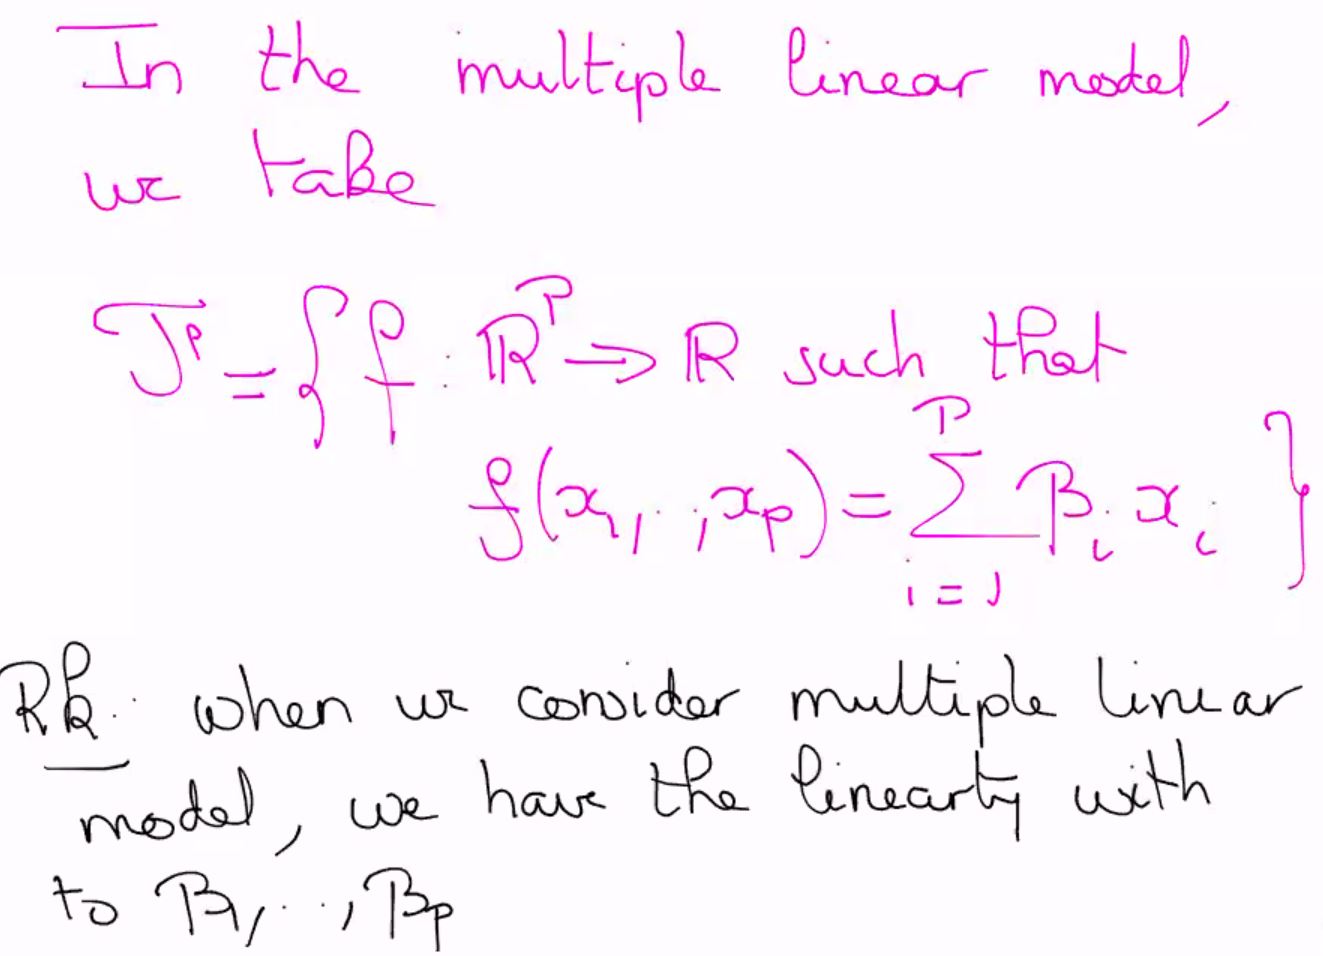 In the multiple linear model,
we take
𝓕^p = { f : ℝ^p → ℝ such that
f(x₁, .., x_p) = ∑_{i=1}^{p} β_i x_i }
Rk: when we consider multiple linear
model, we have the linearty with
to β₁, .., β_p